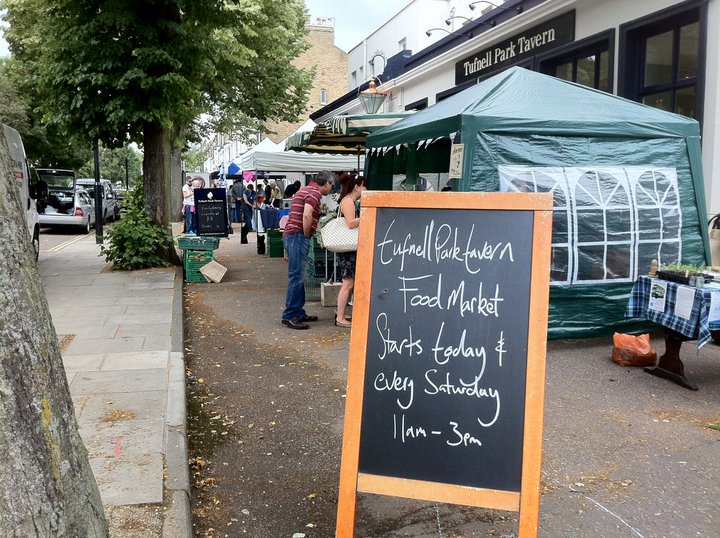 Tufnell Park Tavern
tufnell Park tavern
Food Market
Starts today &
every Saturday
11am - 3pm